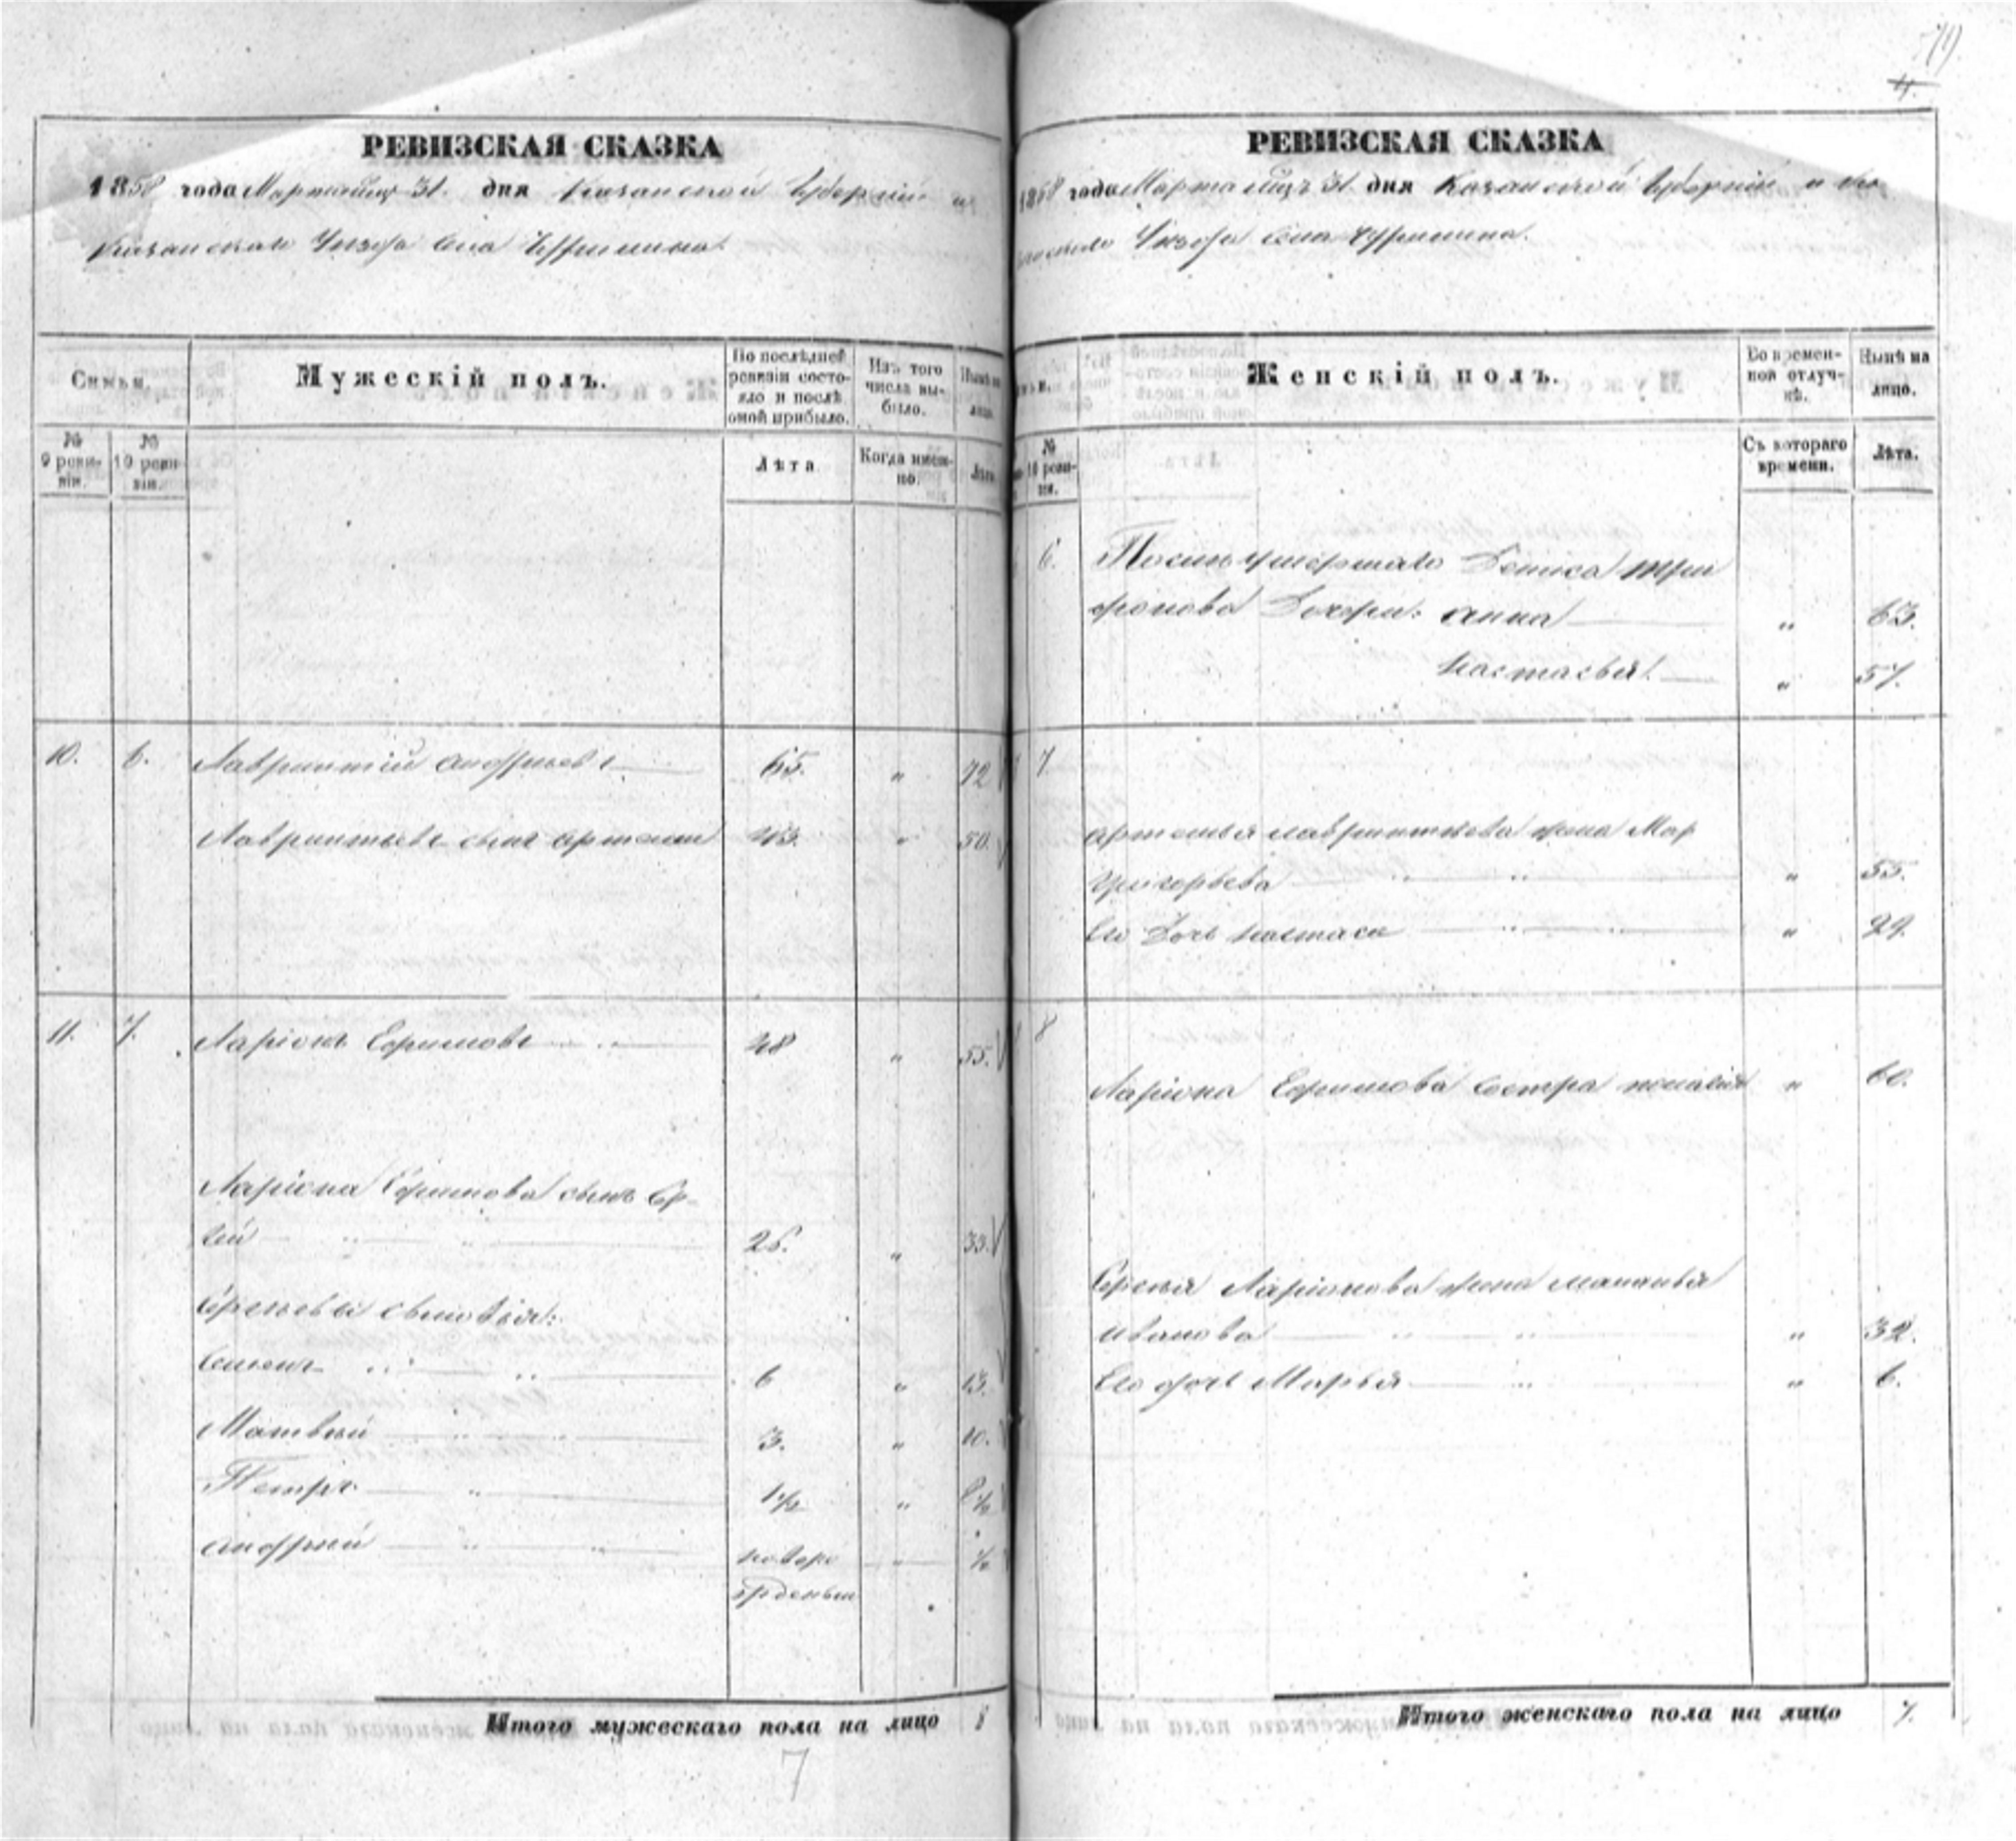 4.
РЕВИЗСКАЯ СКАЗКА
1858 года Марта мца 31. дня Казанской Губерніи и
Казанскаго Уезда Села
Семьи.
Мужескій полъ.
По послѣдней ревизіи состояло и послѣ оной прибыло.
Изъ того числа выбыло.
Нынѣ на лицо.
№ 9 ревизіи.
№ 10 ревизіи.
Лѣта
Когда именно.
Лѣта
10. 6. Лаврентій Андреевъ 65. " 72
Лаврентьевъ сынъ Артемій 43. " 50.
11. 7. Ларіонъ Ефимовъ 48 " 55.
Ларіона Ефимова сынъ Сер-
гей 26. " 33.
Сергеевы сыновья:
Семенъ 6 " 13.
Матвей 3. " 10.
Петръ 1½ " 8½
Андрей новоро " ½
жденный
Итого мужескаго пола на лицо 8
7
РЕВИЗСКАЯ СКАЗКА
1858 года Марта мца 31. дня Казанской Губерніи и Ка
занскаго Уезда Села
Женскій полъ.
Во временной отлучкѣ.
Нынѣ на лицо.
№ 10 ревизіи.
Съ котораго времени.
Лѣта.
6. После умершаго Дениса Три
фонова Дочери: Анна " 63.
Настасья. " 57.
7
Артемья Лаврентьева жена Мар
Григорьева " 55.
Его Дочь Настася " 29.
8
Ларіона Ефимова Сестра " 60.
Сергея Ларіонова жена Маланья
Иванова " 32.
Его дочь Марья " 6.
Итого женскаго пола на лицо 7.